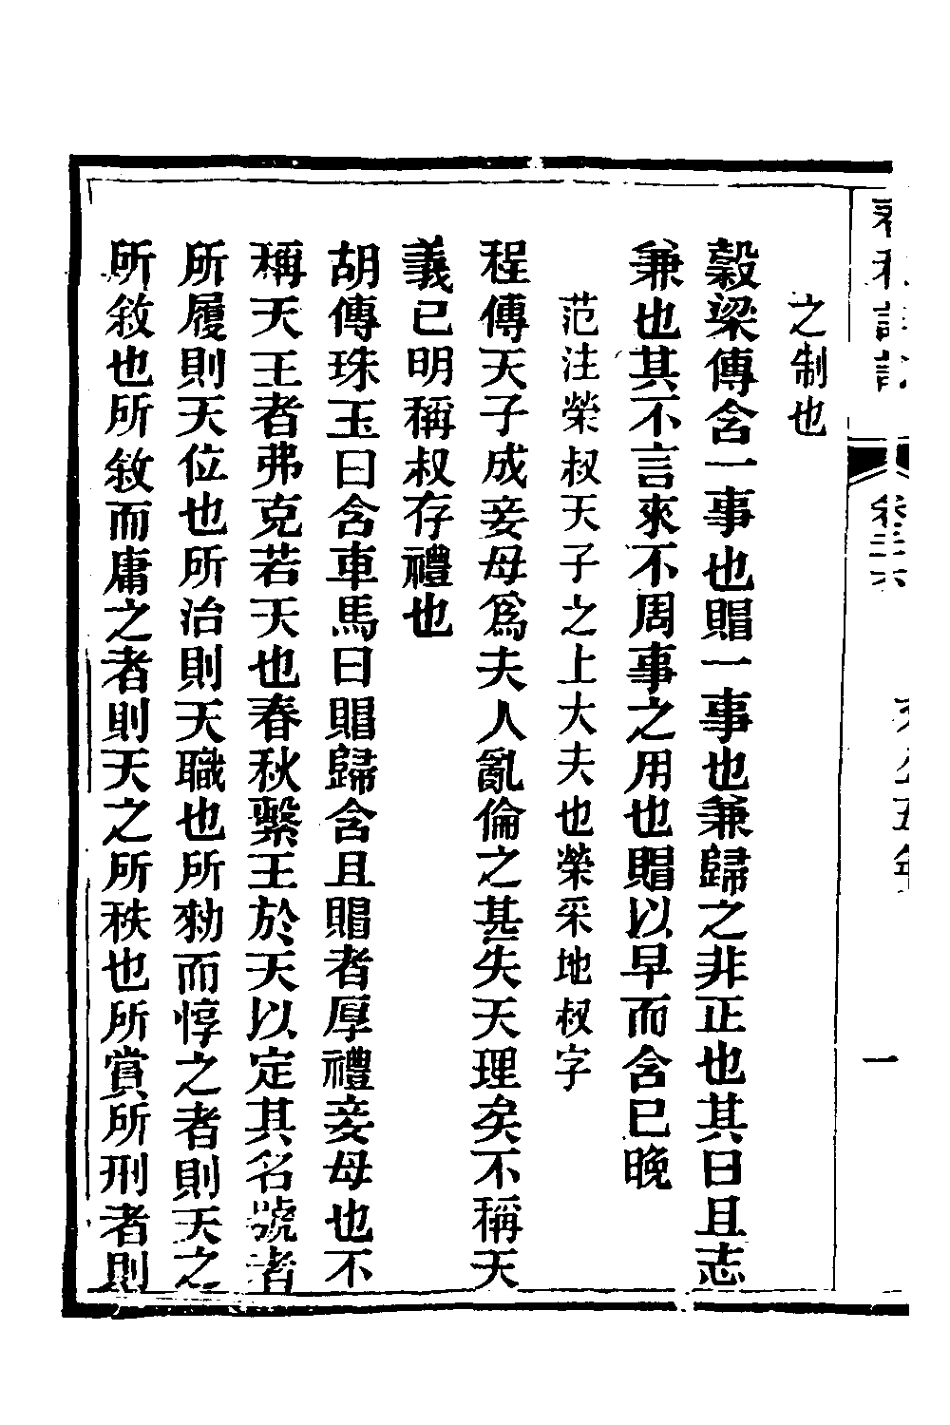 卷三六
一
之制也
穀梁傳含一事也賵一事也兼歸之非正也其曰且志
兼也其不言來不周事之用也賵以早而含已晚
范注榮叔天子之上大夫也榮采地叔字
程傳天子成妾母爲夫人亂倫之甚失天理矣不稱天
義已明稱叔存禮也
胡傳珠玉曰含車馬曰賵歸含且賵者厚禮妾母也不
稱天王者弗克若天也春秋繫王於天以定其名號者
所履則天位也所治則天職也所勑而惇之者則天之
所敘也所敘而庸之者則天之所秩也所賞所刑者則